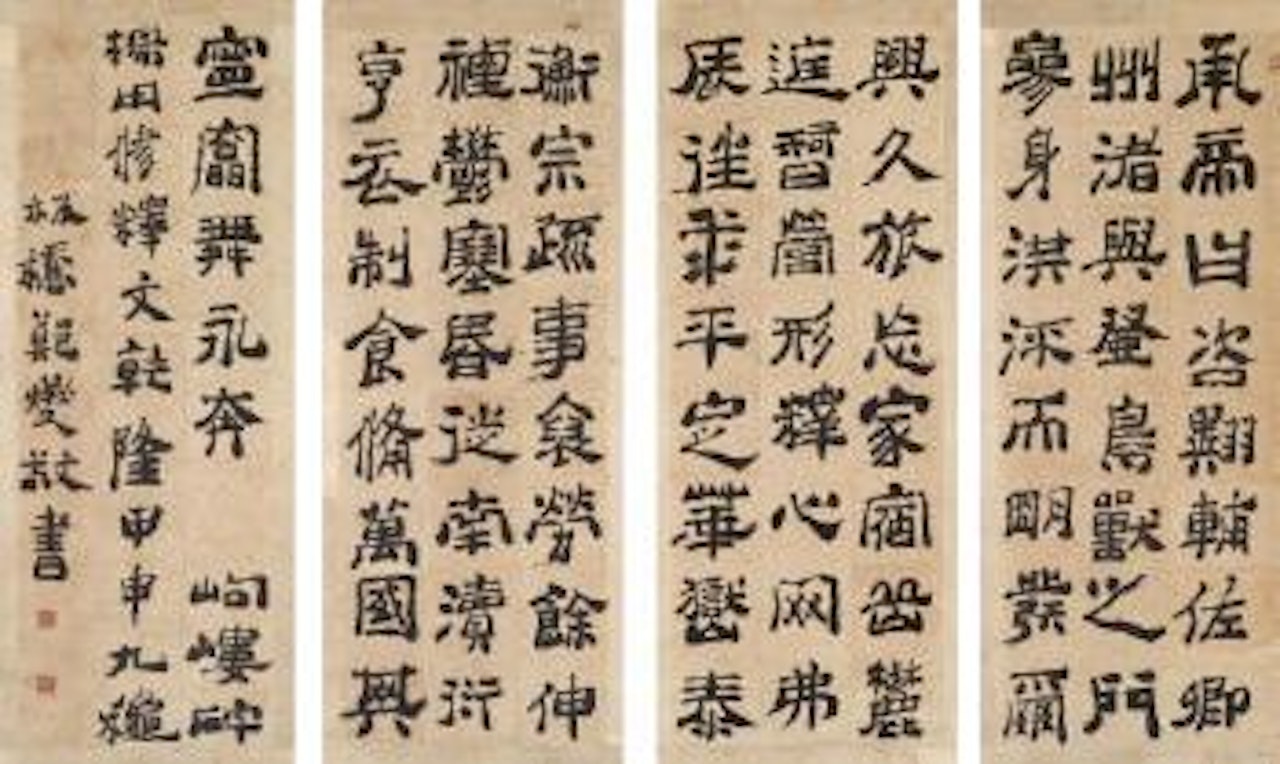 承帝曰咨翼輔佐卿
州渚與登鳥獸之門
參身洪流而明發爾
興久旅忘家宿岳麓
庭智營形釋心网弗
辰往求平定華嶽泰
衡宗疏事裒勞餘伸
禋鬱塞昏徙南瀆衍
亨衣制食備萬國其
寧竄舞永奔 岣嶁碑
楊用修釋文乾隆甲申九龝
板橋鄭燮敬書